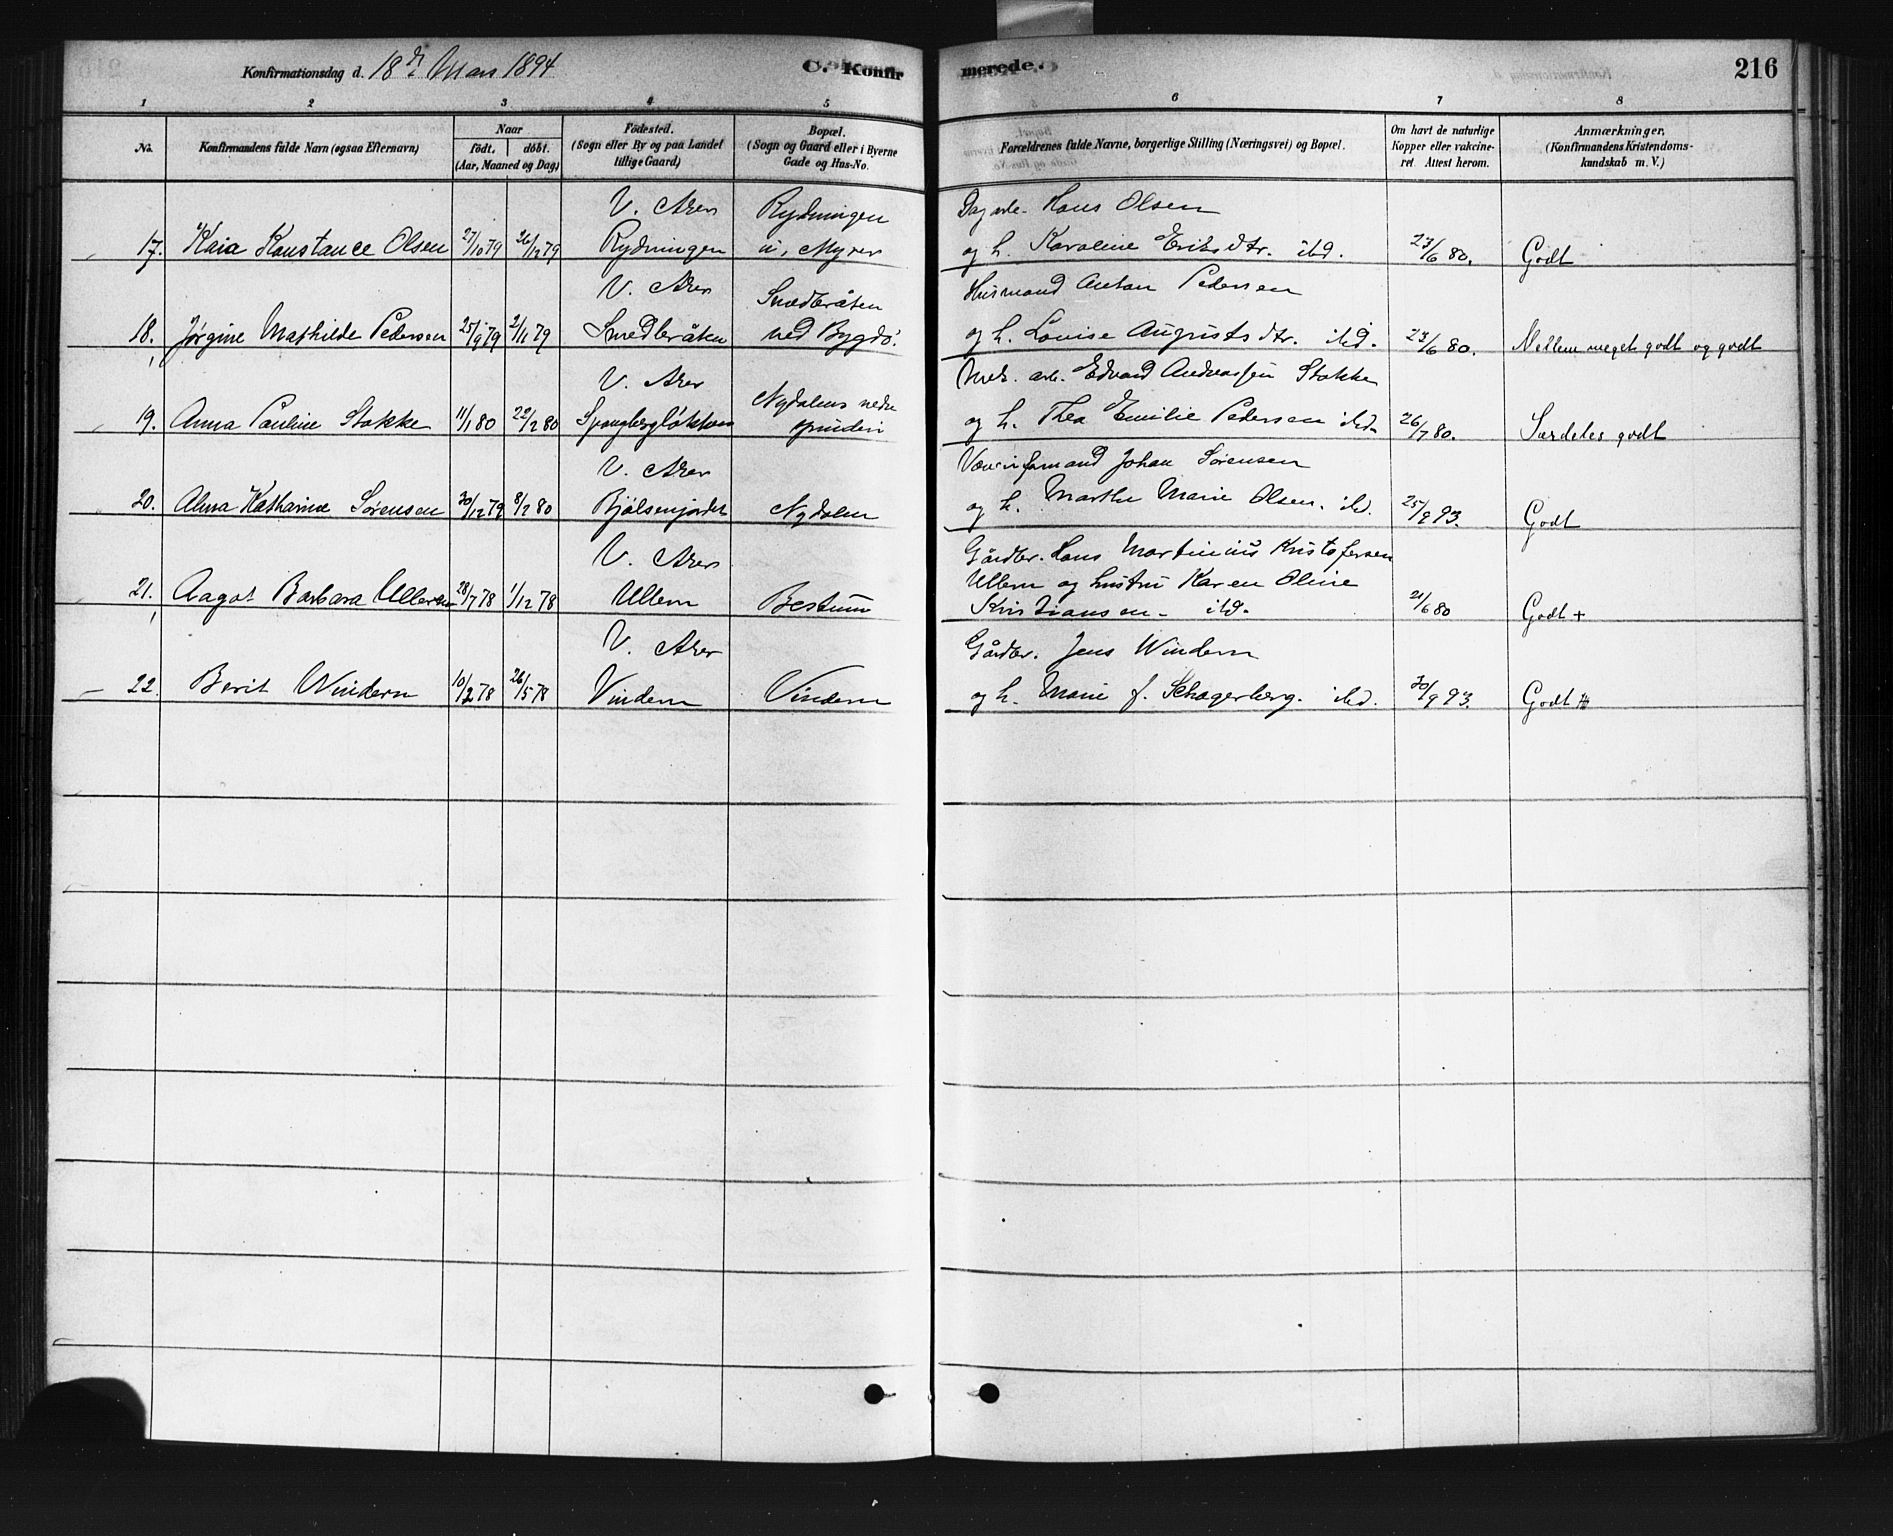 Konfirmationsdag d. 18de Mars 1894
C. Konfirmerede.
216
1 2 3 4 5 6 7 8
No.
Konfirmandens fulde Navn (ogsaa Efternavn)
Naar
født. døbt.
(Aar, Maaned og Dag)
Fødested.
(Sogn eller By og paa Landet
tillige Gaard)
Bopæl.
(Sogn og Gaard eller i Byerne
Gade og Hus-No.
Forældrenes fulde Navne, borgerlige Stilling (Næringsvei) og Bopæl.
Om havt de naturlige
Kopper eller vakcine-
ret. Attest herom.
Anmærkninger,
(Konfirmandens Kristendoms-
kundskab m. V.)
V. Aker Rydningen Dagarb. Hans Olsen
17. Kaia Konstance Olsen 27/10 79 26/12 79 Rydningen u. Myrer og h. Karoline Eriksdtr. ibd. 23/6 80. Godt
V. Aker Smedbråten Husmand Anton Pedersen
18. Jørgine Mathilde Pedersen 25/9 79 2/11 79 Smedbråten ved Bygdø. og h. Lovise Augustsdtr. ibd. 23/6 80. Mellem meget godt og godt
V. Aker Nydalens nedre Mek. arb. Edvard Andreassen Stokke
19. Anna Pauline Stokke 11/1 80 22/2 80 Spangbergløkken spinderi og h. Thea Emilie Pedersen ibd. 26/7 80. Særdeles godt
V. Aker Johan Sørensen
20. Alma Katharine Sørensen 30/12 79 8/2 80 Bjølsenjordet Nydalen og h. Marthe Marie Olsen. ibd. 25/9 93. Godt
V. Aker Gårdbr. Hans Martinius Kristofersen
Ullern og hustru Karen Oline
21. Aagot Barbara Ullern 28/7 78 1/12 78 Ullern Bestum Kristiansen - ibd. 21/6 80 Godt +
V. Aker Gårdbr. Jens Windern
22. Berit Windern 10/2 78 26/5 78 Vindern Vindern og h. Marie f. Schagerberg. ibd. 30/9 93. Godt